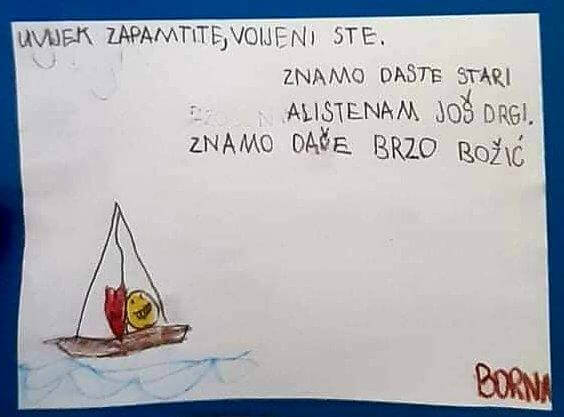 UVIJEK ZAPAMTITE, VOLJENI STE.
ZNAMO DASTE STARI
ALISTENAM JOŠ DRGI.
ZNAMO DAČE BRZO BOŽIĆ
BORNA